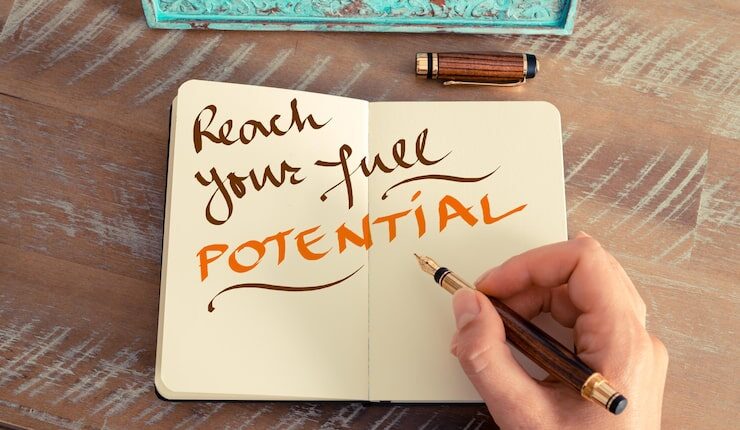 Reach
your full
POTENTIAL